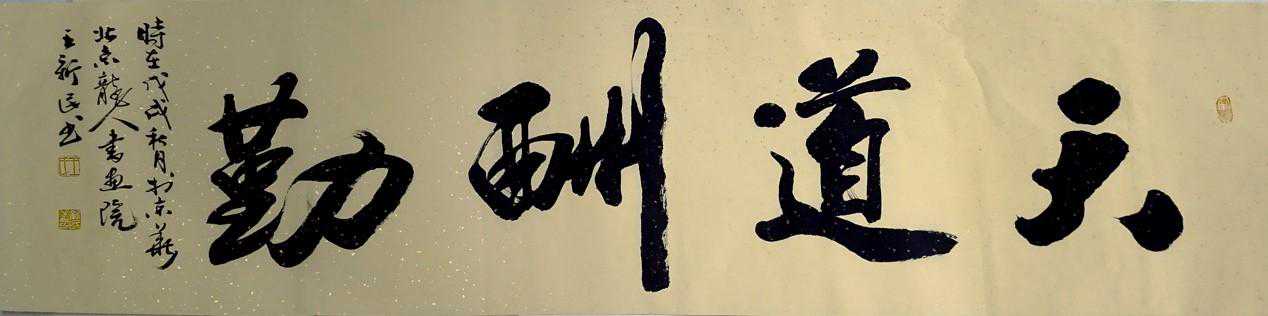 天道酬勤
時在戊戌秋月於京華
北京龍人書画院
王新民书